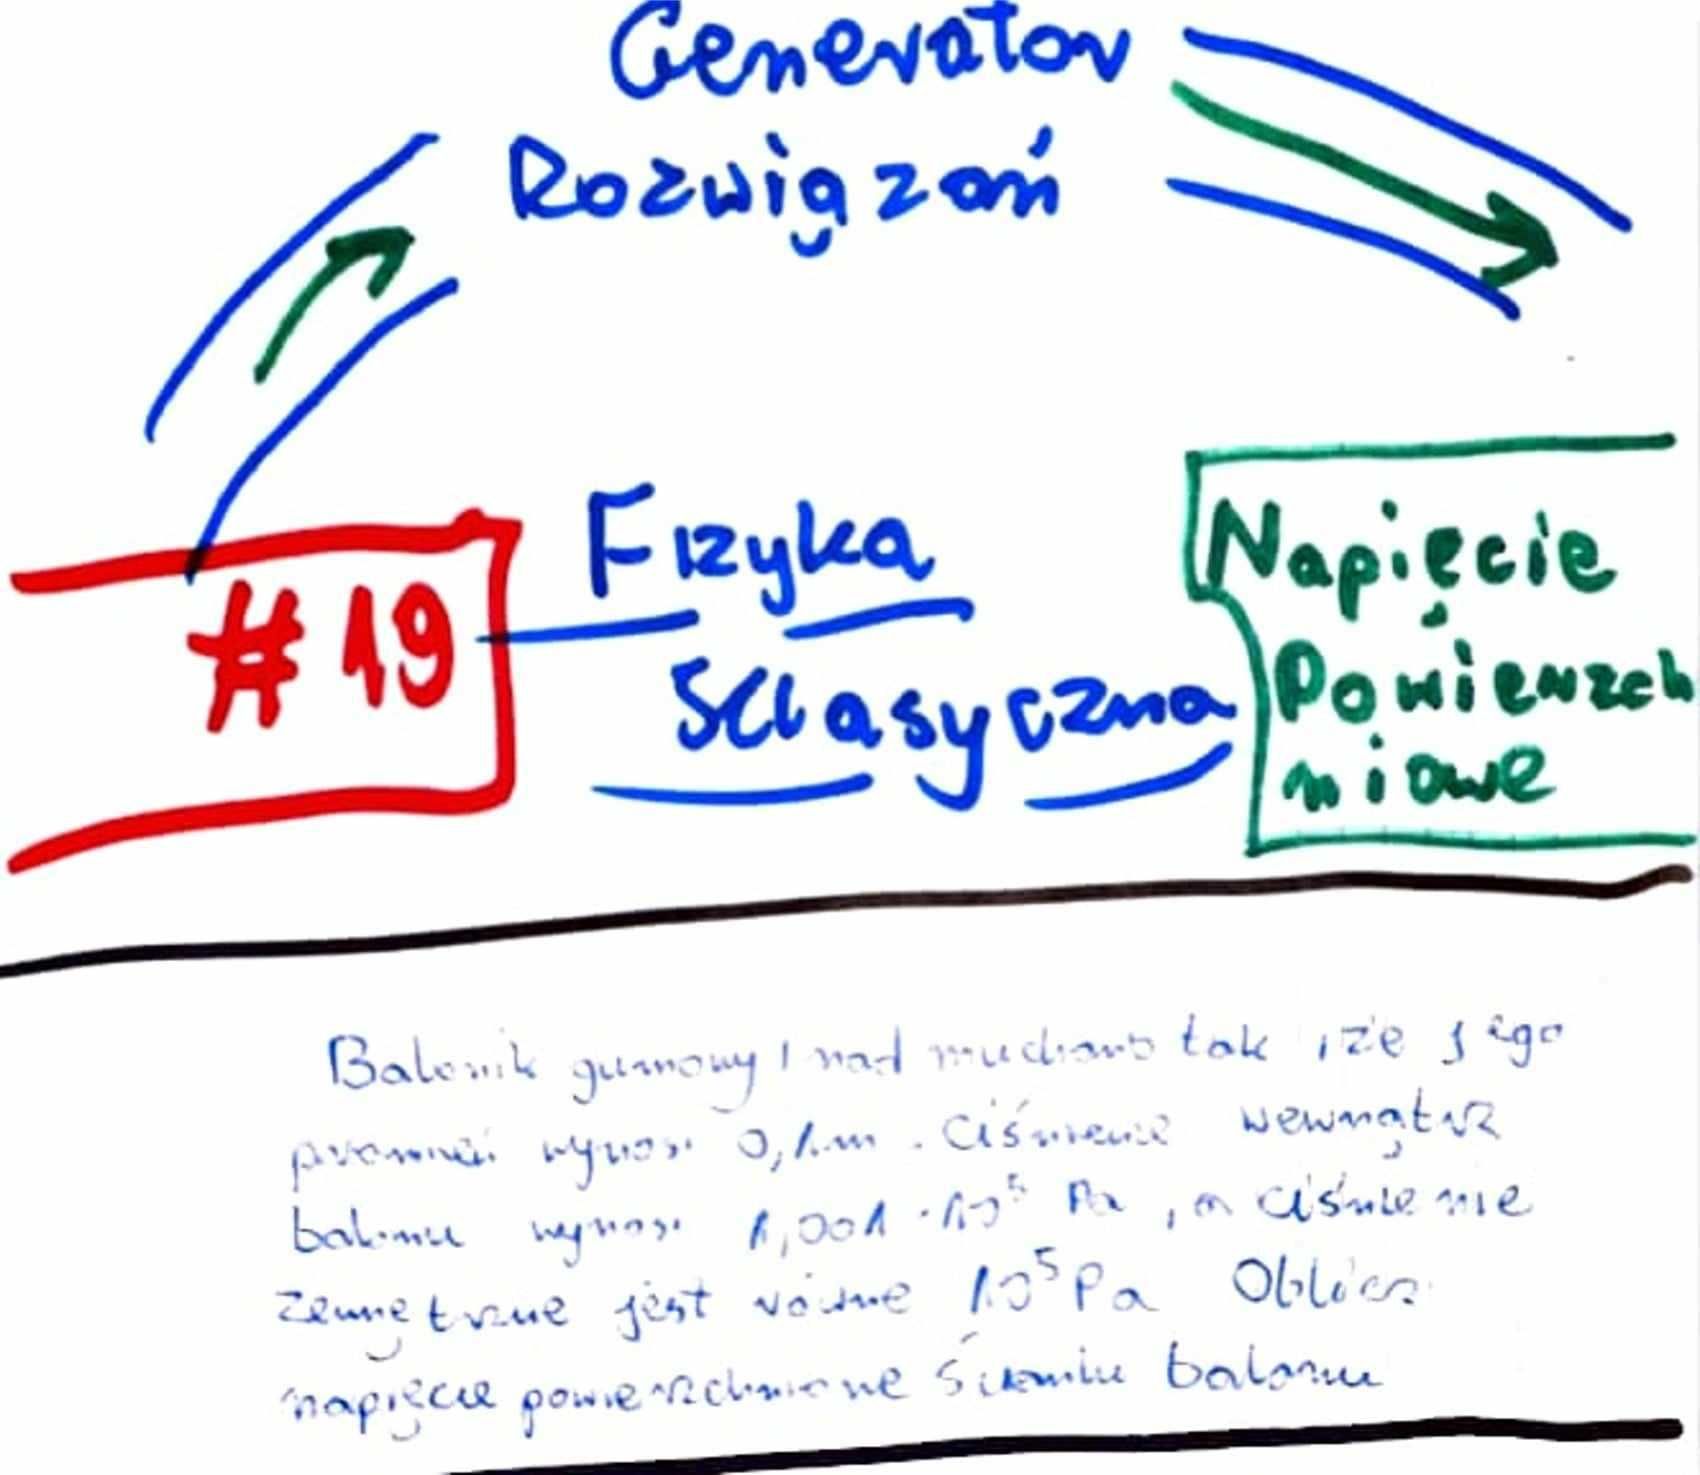 Generator
Rozwiązań
#19
Fizyka
Klasyczna
Napięcie
Powierzch
niowe
Balonik gumowy nadmuchano tak, że jego
promień wynosi 0,1m. Ciśnienie wewnątrz
balonu wynosi 1,001 · 10⁵ Pa, a ciśnienie
zewnętrzne jest równe 10⁵ Pa Oblicz
napięcie powierzchniowe ścianki balonu